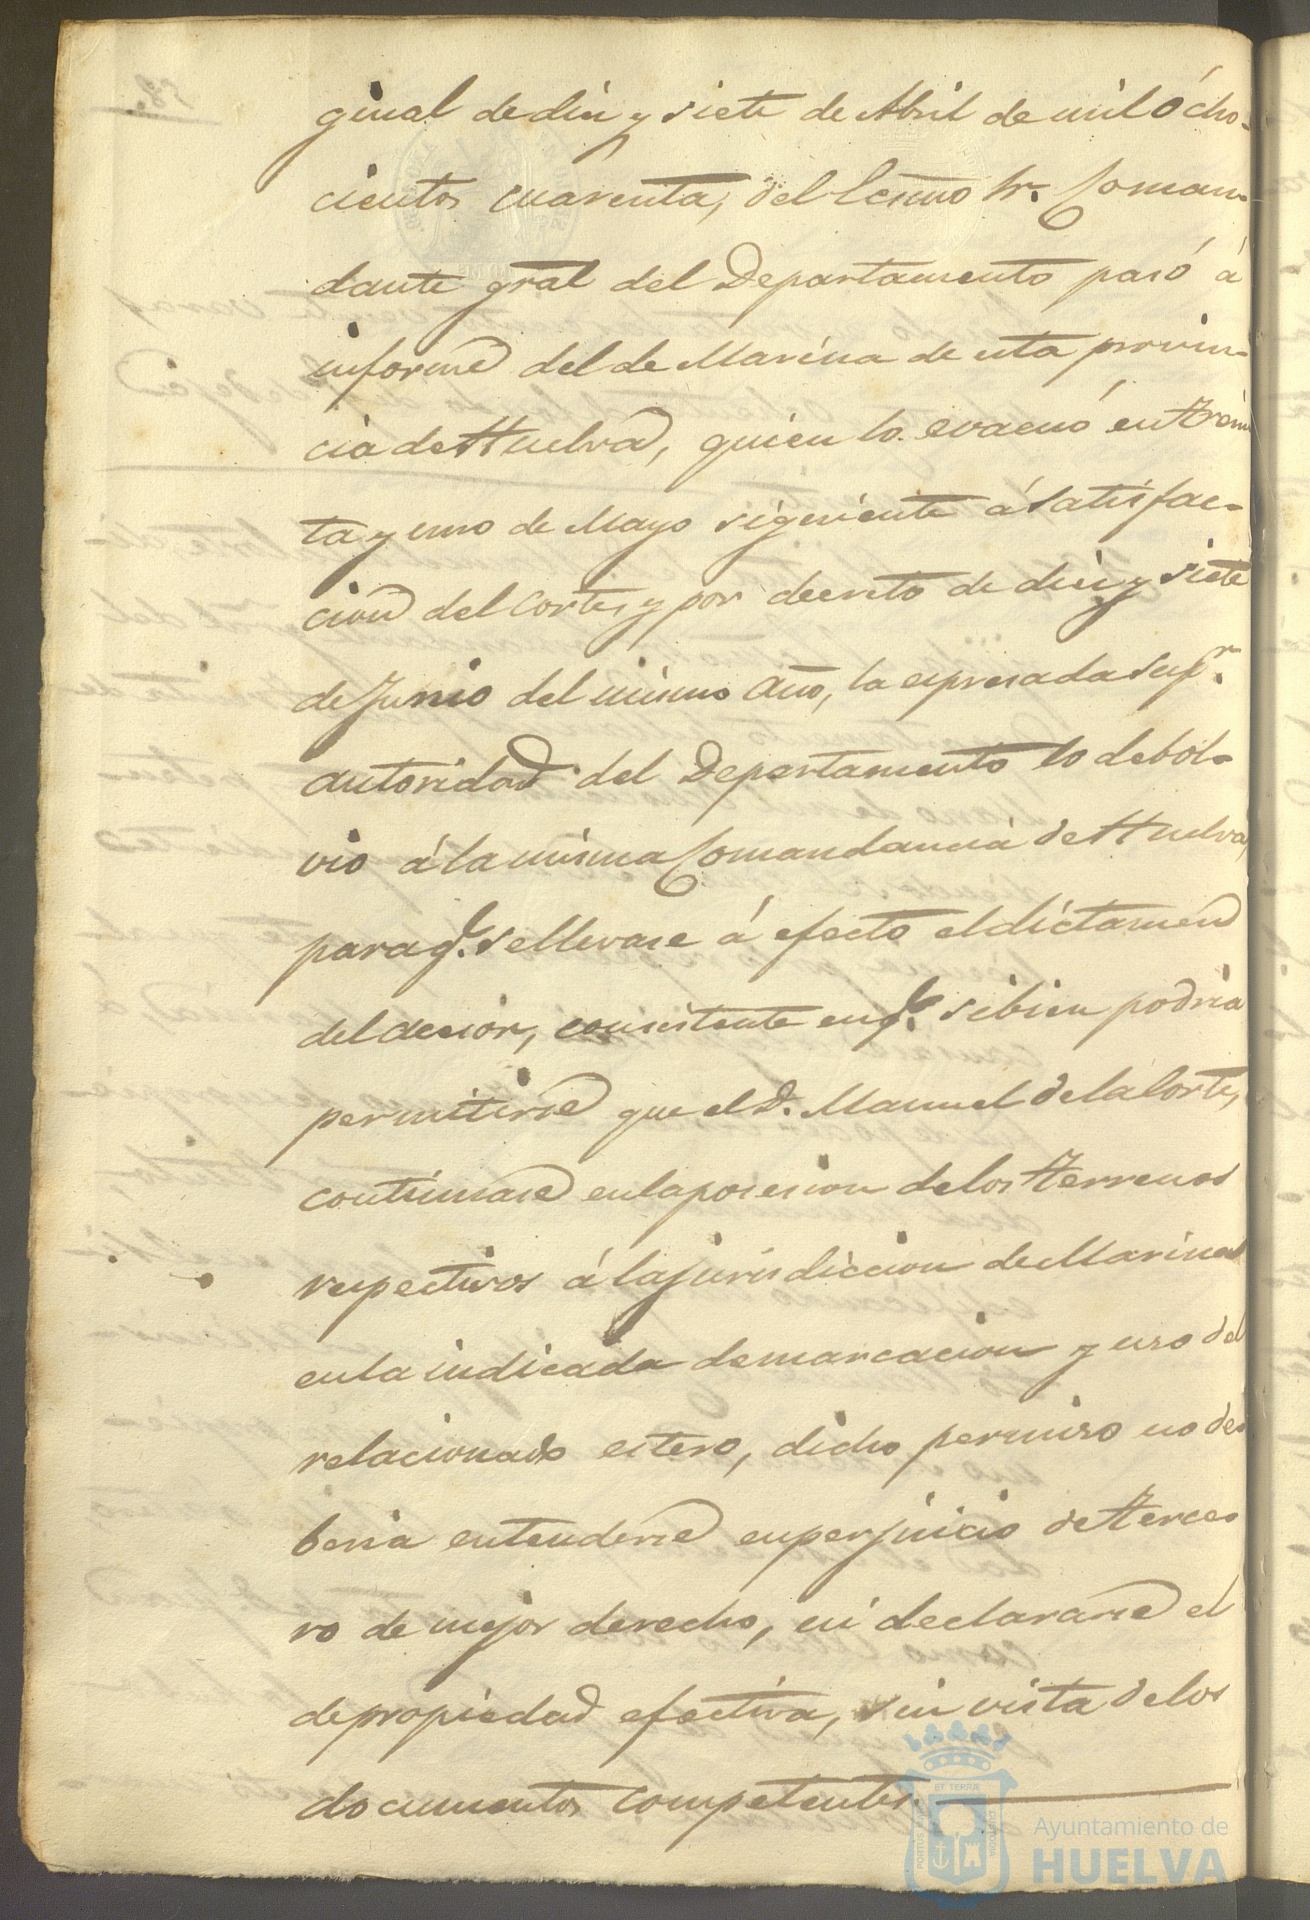 ginal de diez y siete de Abril de mil ocho-
cientos cuarenta, del Ecsmo Sr. Coman-
dante gral del Departamento pasó á
informe del de Marina de esta provin-
cia de Huelva, quien lo evacuó en trein
ta y uno de Mayo siguiente á satisfac-
cion del Cortes, y por decreto de diez y siete
de Junio del mismo año, la espresada Supr.
autoridad del Departamento lo debol-
vio á la misma Comandancia de Huelva,
para q.e se llevase á efecto el dictamen
del asesor, consistente en q.e si bien podria
permitirse que el D. Manuel de la Corte,
continuase en la posesion de los terrenos
respectivos á la jurisdiccion de Marina
en la indicada demarcacion y uso del
relacionado estero, dicho permiso no de-
beria entenderse en perjuicio de terce-
ro de mejor derecho, ni declararse el
de propiedad efectiva, sin vista de los
documentos competentes.
ET TERRÆ
Ayuntamiento de
HUELVA